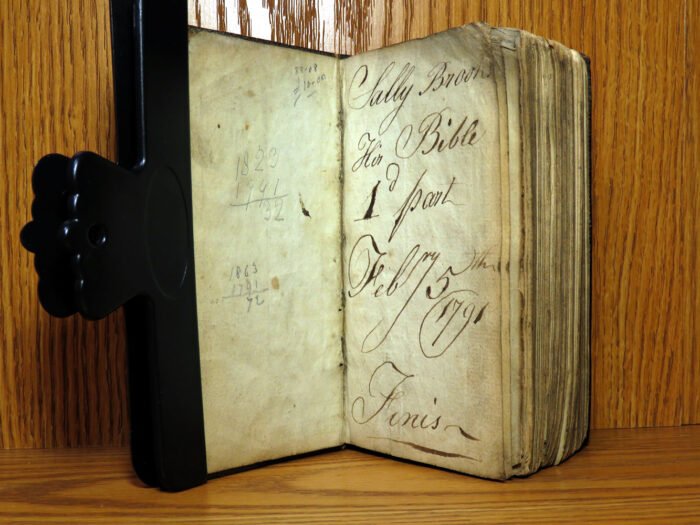 1823
1791
32
1863
1791
72
Sally Brooks
Hir Bible
1d part
Febry 5th
1791
Finis